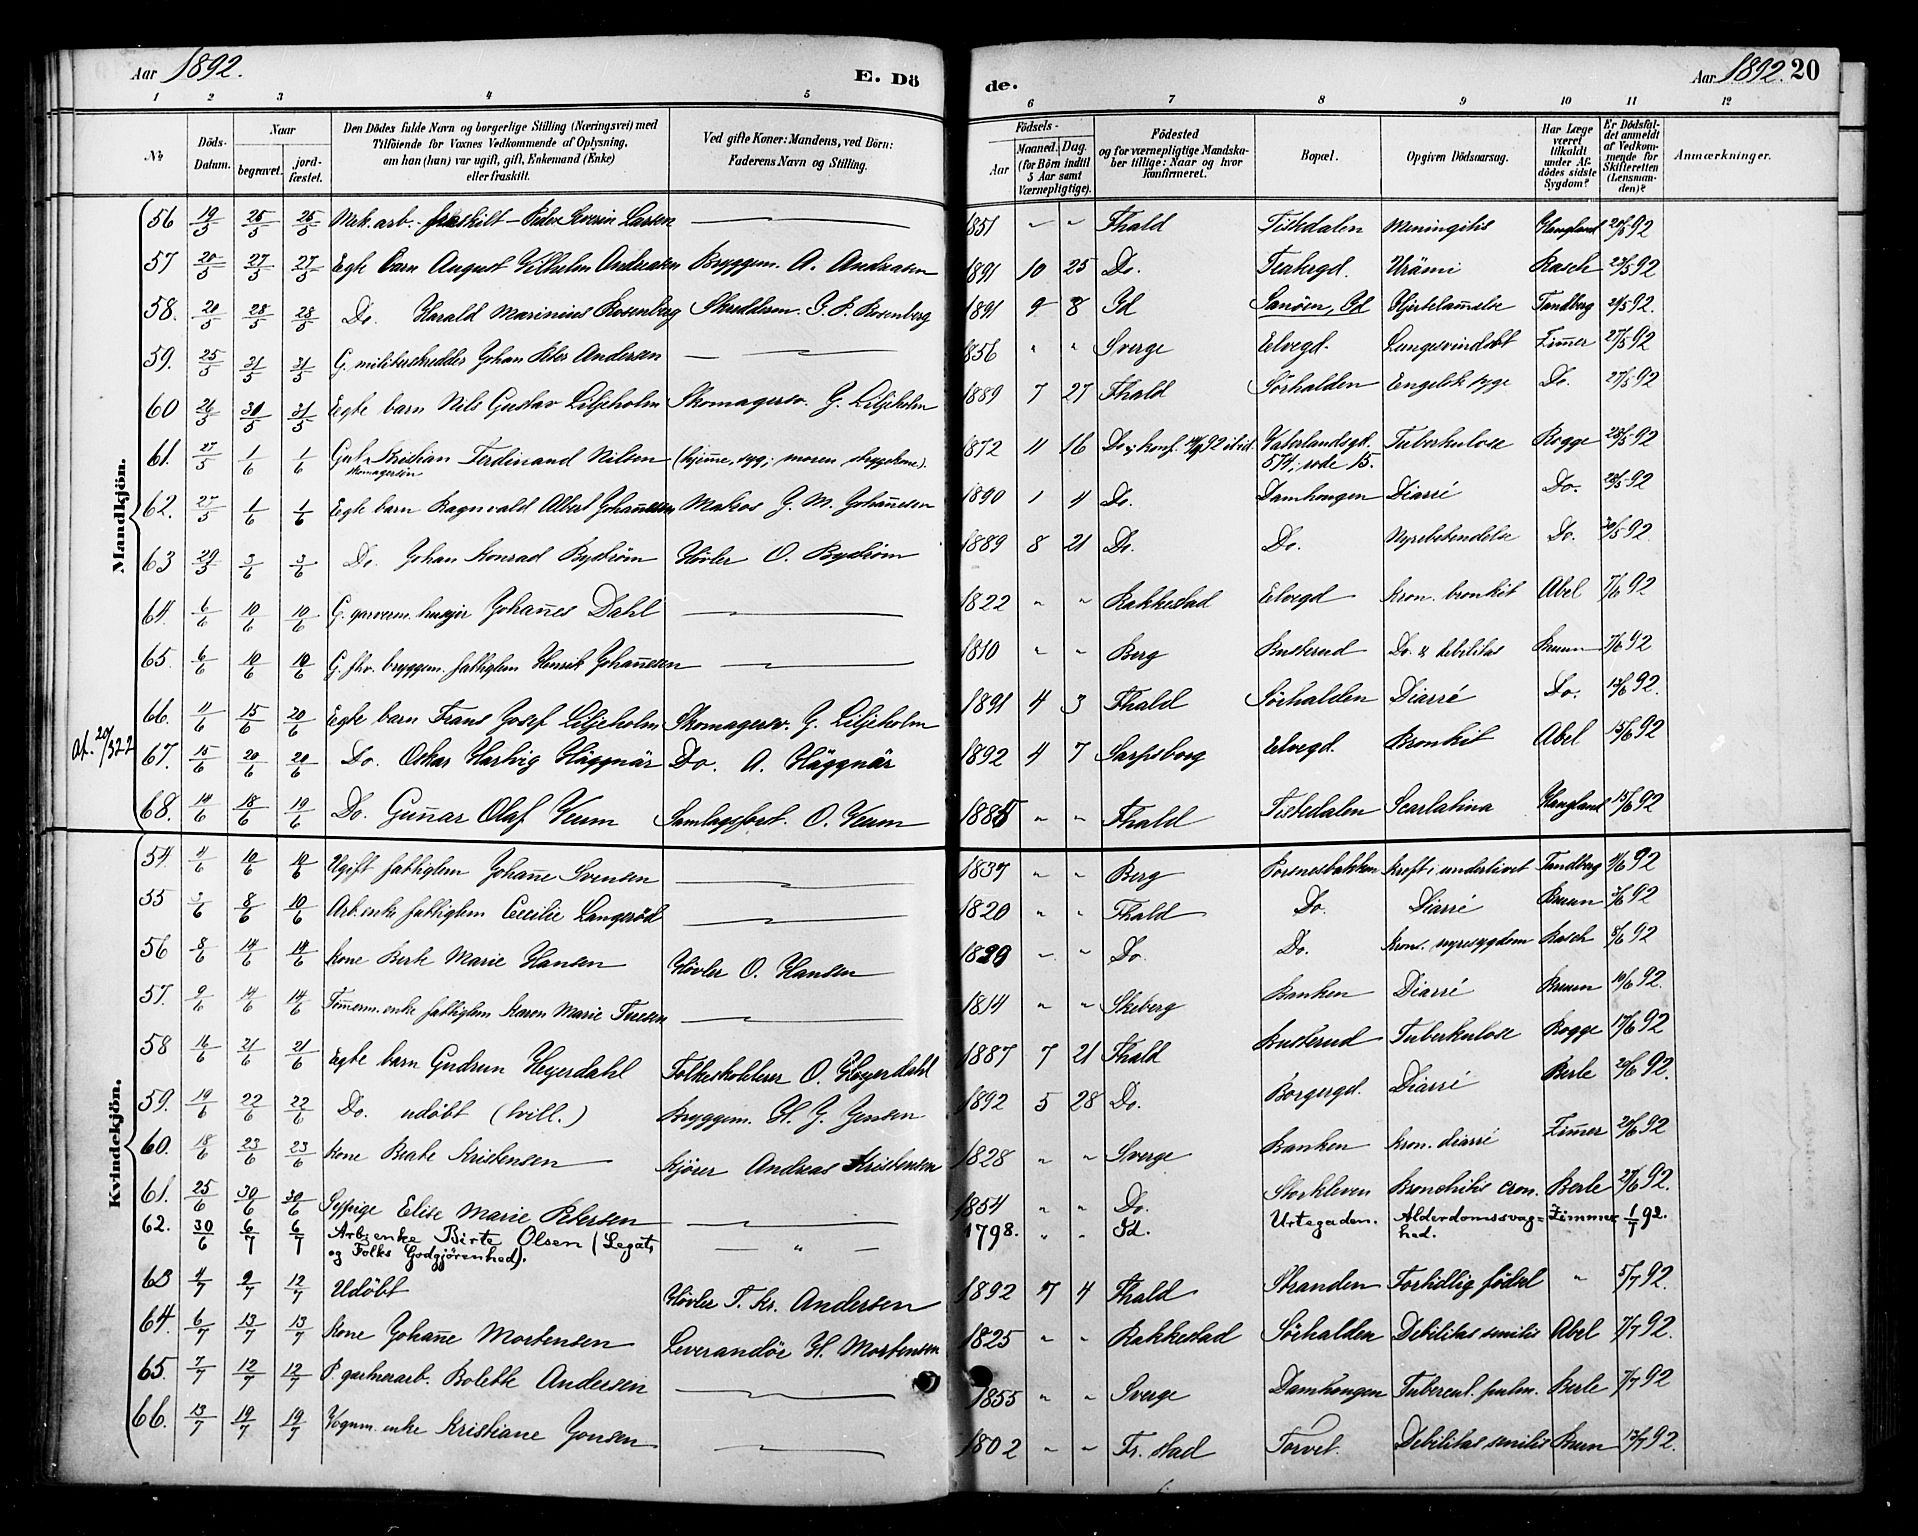 Aar 1892. E. Dö
1 2 3 4 5
No. Döds-Datum. Naar begravet. jord-fæstet. Den Dödes fulde Navn og borgerlige Stilling (Næringsvei) med Tilföiende for Voxnes Vedkommende af Oplysning, om han (hun) var ugift, gift, Enkemand (Enke) eller fraskilt. Ved gifte Koner: Mandens, ved Börn: Faderens Navn og Stilling.
Mandkjön.
56 19/5 25/5 25/5 Mek. arb. fraskilt – Peder Severin Larsen —
57 20/5 27/5 27/5 Egte barn August Vilhelm Andreasen Bryggem. A. Andreasen
58. 20/5 28/5 28/5 Do. Harald Marinius Rosenberg Skreddersv. G. P. Rosenberg
59. 25/5 31/5 31/5 G. militærskredder Johan Peter Andersen —
60 26/5 30/5 31/5 Egte barn Nils Gustav Liljeholm Skomagersv. G. Liljeholm
61. 27/5 1/6 1/6 Gut Kristian Ferdinand Nilsen (hjemme, syg; moren strygekone).
skomagersön
62. 27/5 1/6 1/6 Egte barn Ragnvald Albert Johannesen Matros J. M. Johannesen
63 29/5 3/6 3/6 Do. Johan Konrad Byström Hövler O. Byström
64. 6/6 10/6 10/6 G. garverm. huseier Johannes Dahl —
65. 6/6 10/6 10/6 G. fhv. bryggem. fattiglem Henrik Johannesen —
66. 11/6 15/6 20/6 Egte barn Frans Josef Liljeholm Skomagersv. G. Liljeholm
67. 15/6 20/6 20/6 Do. Oskar Hartvig Häggnär Do. A. Häggnär
68. 14/6 18/6 19/6 Do. Gunnar Olaf Veum Samlagsbest. O. Veum
Kvindekjön.
54. 4/6 10/6 10/6 Ugift fattiglem Johanne Svensen —
55 3/6 8/6 10/6 Arb. enke fattiglem Cecilie Langeröd —
56 8/6 14/6 14/6 Kone Berte Marie Hansen Hövler O. Hansen
57. 9/6 14/6 14/6 Tömmerm. enke fattiglem Karen Marie Tuesen —
58 16/6 21/6 21/6 Egte barn Gudrun Heyerdahl Folkeskolelærer O. Heyerdahl
59. 19/6 22/6 22/6 Do. udöbt (tvill.) Bryggem. H. J. Jensen
60. 18/6 23/6 23/6 Kone Beate Kristensen Kjörer Andreas Kristensen
61. 25/6 30/6 30/6 Sypige Elise Marie Petersen —
62. 30/6 6/7 6/7 Arb. enke Birte Olsen (Legat, — " —
og Folks Godgjörenhed).
63 4/7 9/7 12/7 Udöbt Hövler T. Kr. Andersen
64. 6/7 13/7 13/7 Kone Johanne Mortensen Leverandör H. Mortensen
65. 7/7 12/7 12/7 P. gartnerarb. Bolette Andersen —
66. 13/7 19/7 19/7 Vognm. enke Kristiane Jonsen —
de. Aar 1892. 20
6 7 8 9 10 11 12
Födsels- Aar Maaned. Dag. (for Börn indtil 5 Aar samt Værnepligtige). Födested og for værnepligtige Mandskaber tillige: Naar og hvor konfirmeret. Bopæl. Opgiven Dödsaarsag. Har Læge været tilkaldt under Afdödes sidste Sygdom? Er Dödsfaldet anmeldt af Vedkommende for Skifteretten (Lensmanden)? Anmærkninger.
1851 " " Fhald Tistedalen Meningitis Haugland 20/5 92
1891 10 25 Do. Teatergd. Urämi Rasch 23/5 92
1891 9 8 Id Sanöen, Id Hjertelammelse Tandberg 24/5 92
1856 " " Sverge Elvegd. Lungesvindsot Zimmer 27/5 92
1889 7 27 Fhald Sörhalden Engelsk syge Do. 27/5 92
1872 11 16 Do; konf. 92 ibid. Vaterlandsgd. Tuberkulose Bogge 28/5 92
574, rode 15.
1890 1 4 Do. Damhaugen Diarré Do. 28/5 92
1889 8 21 Do. Do. Nyrebetendelse Do. 30/5 92
1822 " " Rakkestad Elvegd Kron. bronkit Abel 7/6 92
1810 " " Berg Busterud Do. & debilitas Bruun 7/6 92
1891 4 3 Fhald Sörhalden Diarré Do. 13/6 92.
1892 4 7 Sarpsborg Elvegd. Bronkit Abel 15/6 92
1885 " " Fhald Tistedalen Scarlatina Haugland 15/6 92
1837 " " Berg Porsnesbakken Kreft i underlivet Tandberg 4/6 92
1820 " " Fhald Do. Diarré Bruun 3/6 92
1829 " " Do. Do. Kron. nyresygdom Rasch 8/6 92
1814 " " Skeberg Banken Diarré Bruun 10/6 92.
1887 7 21 Fhald Busterud Tuberkulose Bogge 17/6 92
1892 5 28 Do. Borgergd. Diarré Berle 20/6 92.
1828 " " Sverge Banken Kron. diarré Zimmer 20/6 92
1854 " " Do. Storkleven Bronchitis cron. Berle 27/6 92.
1798. " " Id. Urtegaden. Alderdomssvag- Zimmer 1/7 92.
hed.
1892 7 4 Fhald Stranden Fortidlig födsel " 5/7 92.
1825 " " Rakkestad Sörhalden Debilitas senilis Abel 7/7 92.
1855 " " Sverge Damhaugen Tubercul. pulm. Berle 7/7 92
1802 " " Fr. stad Torvet. Debilitas senilis Bruun 13/7 92.